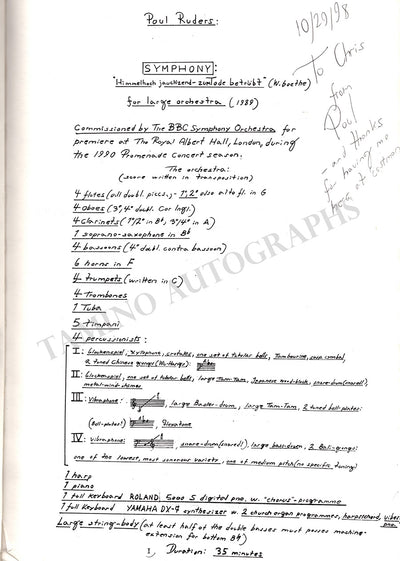 Poul Ruders:
10/29/98
To Chris
from
Poul
- and thanks
for having me
here at Eastman
SYMPHONY:
"Himmelhoch jauchzend - zum Tode betrübt" (W. Goethe)
for large orchestra (1989)
Commissioned by The BBC Symphony Orchestra for
premiere at The Royal Albert Hall, London, during
the 1990 Promenade Concert season.
The orchestra:
(score written in transposition)
4 flutes (all doubl. piccs.; - 1°, 2° also alto fl. in G
4 Oboes (3°, 4° doubl. Cor Ingl.)
4 Clarinets (1°, 2° in Bb, 3°, 4° in A)
1 soprano-saxophone in Bb
4 bassoons (4° doubl. contrabassoon)
6 horns in F
4 trumpets (written in C)
4 Trombones
1 Tuba
5 timpani
4 percussionists:
I: Glockenspiel, xylophone, crotales, one set of tubular bells, Tambourine, susp. cymbal,
2 tuned Chinese gongs
II: Glockenspiel, one set of tubular bells, large Tam-Tam, Japanese wood-blocks, snare-drum (snared!),
metal-wind-chimes
III: Vibraphone, large Bass-drum, large Tam-Tam, 2 tuned bell-plates:
(Bell-plates!) Flexatone
IV: Vibraphone: snare-drum (snared!), large bass-drum, 2 Bali-gongs:
one of the lowest, most sonorous variety, one of medium pitch (no specific tuning)
1 harp
1 piano
1 full keyboard ROLAND 5000 S digital pno. w. "chorus"-programme
1 full keyboard YAMAHA DX-7 synthesizer w. 2 church organ programmes, harpsichord, vibes
pno.
Large string-body (at least half of the double basses must posses machine-
extension for bottom B♮)
Duration: 35 minutes
TAMINO AUTOGRAPHS